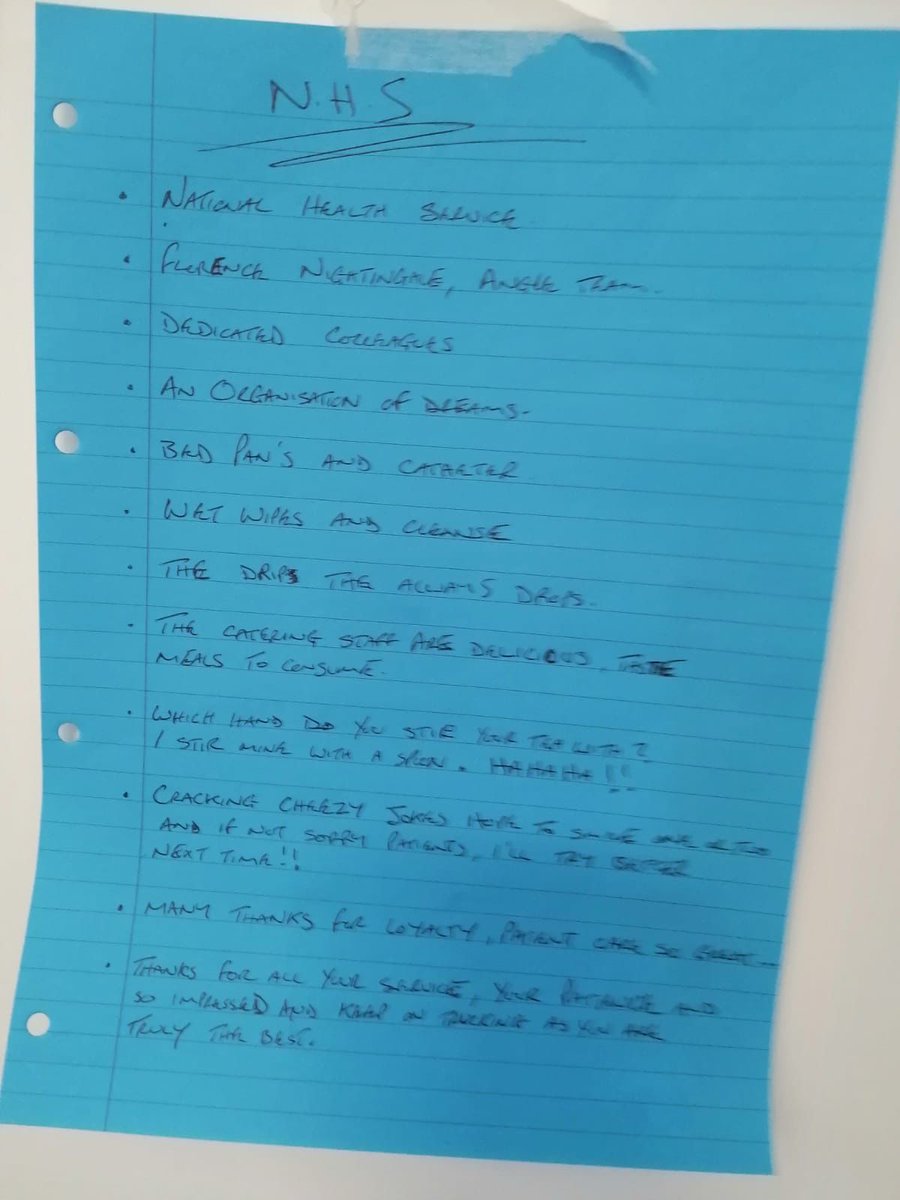 N.H.S
• NATIONAL HEALTH SERVICE
• FLORENCE NIGHTINGALE, ANGLE TEAM.
• DEDICATED COLLEAGUES
• AN ORGANISATION OF DREAMS.
• BED PAN'S AND CATHETER
• WET WIPES AND CLEANSE
• THE DRIPS THE ALWAYS DROPS.
• THE CATERING STAFF ARE DELICIOUS
MEALS TO CONSUME.
• WHICH HAND DO YOU STIR YOUR TEA WITH?
I STIR MINE WITH A SPOON. HA HA HA!!
• CRACKING CHEEZY JOKES HOPE TO SMILE ONE OR TOO
AND IF NOT SORRY PATIENTS, I'LL TRY BETTER
NEXT TIME!!
• MANY THANKS FOR LOYALTY, PATIENT CARE SO GREAT...
• THANKS FOR ALL YOUR SERVICE, YOUR PATIENCE AND
SO IMPRESSED AND KEEP ON TRUCKING AS YOU ARE
TRULY THE BEST.